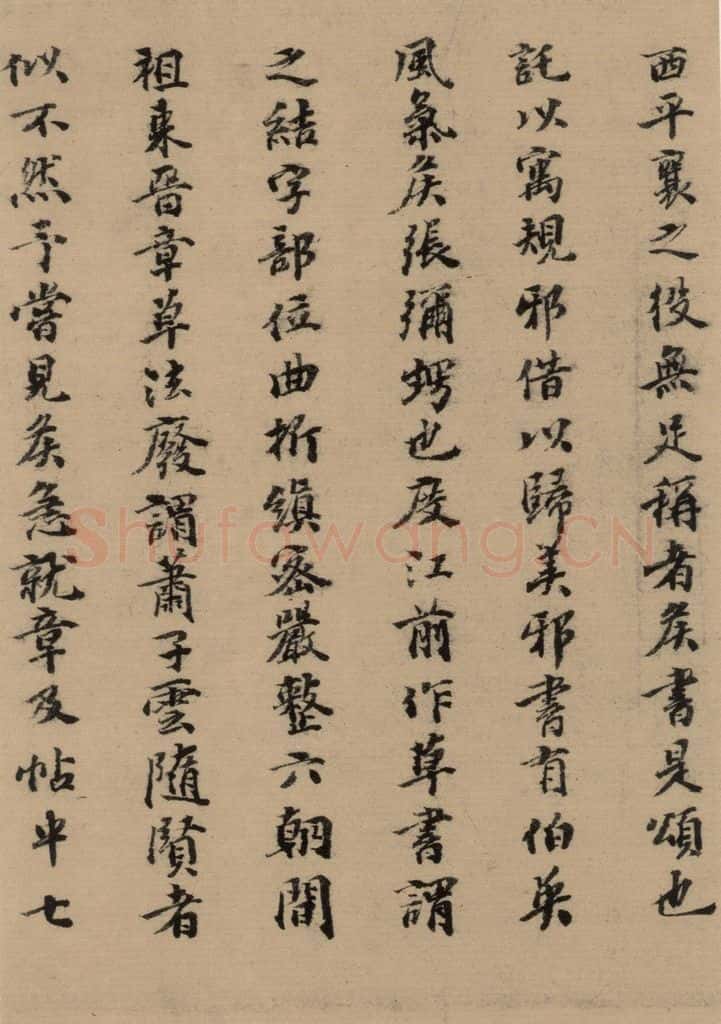 西平襄之役無足稱者矦書是頌也
託以寓規邪借以歸美邪書有伯英
風氣矦張彌愕也度江前作草書謂
之結字部位曲折縝密嚴整六朝間
祖東晉章草法廢謂蕭子雲隨賢者
似不然予嘗見矦急就章及帖中七
Shufawang.CN